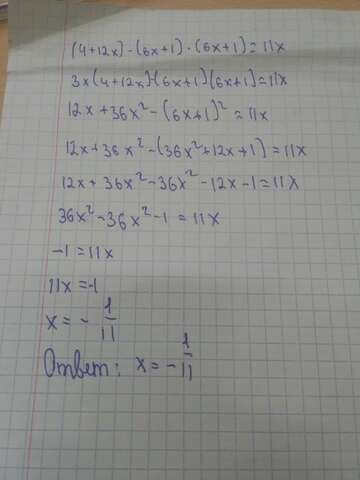 (4+12x)-(6x+1)·(6x+1)=11x
3x(4+12x)-(6x+1)(6x+1)=11x
12x+36x²-(6x+1)²=11x
12x+36x²-(36x²+12x+1)=11x
12x+36x²-36x²-12x-1=11x
36x²-36x²-1=11x
-1=11x
11x=-1
x=-1/11
Ответ: x=-1/11